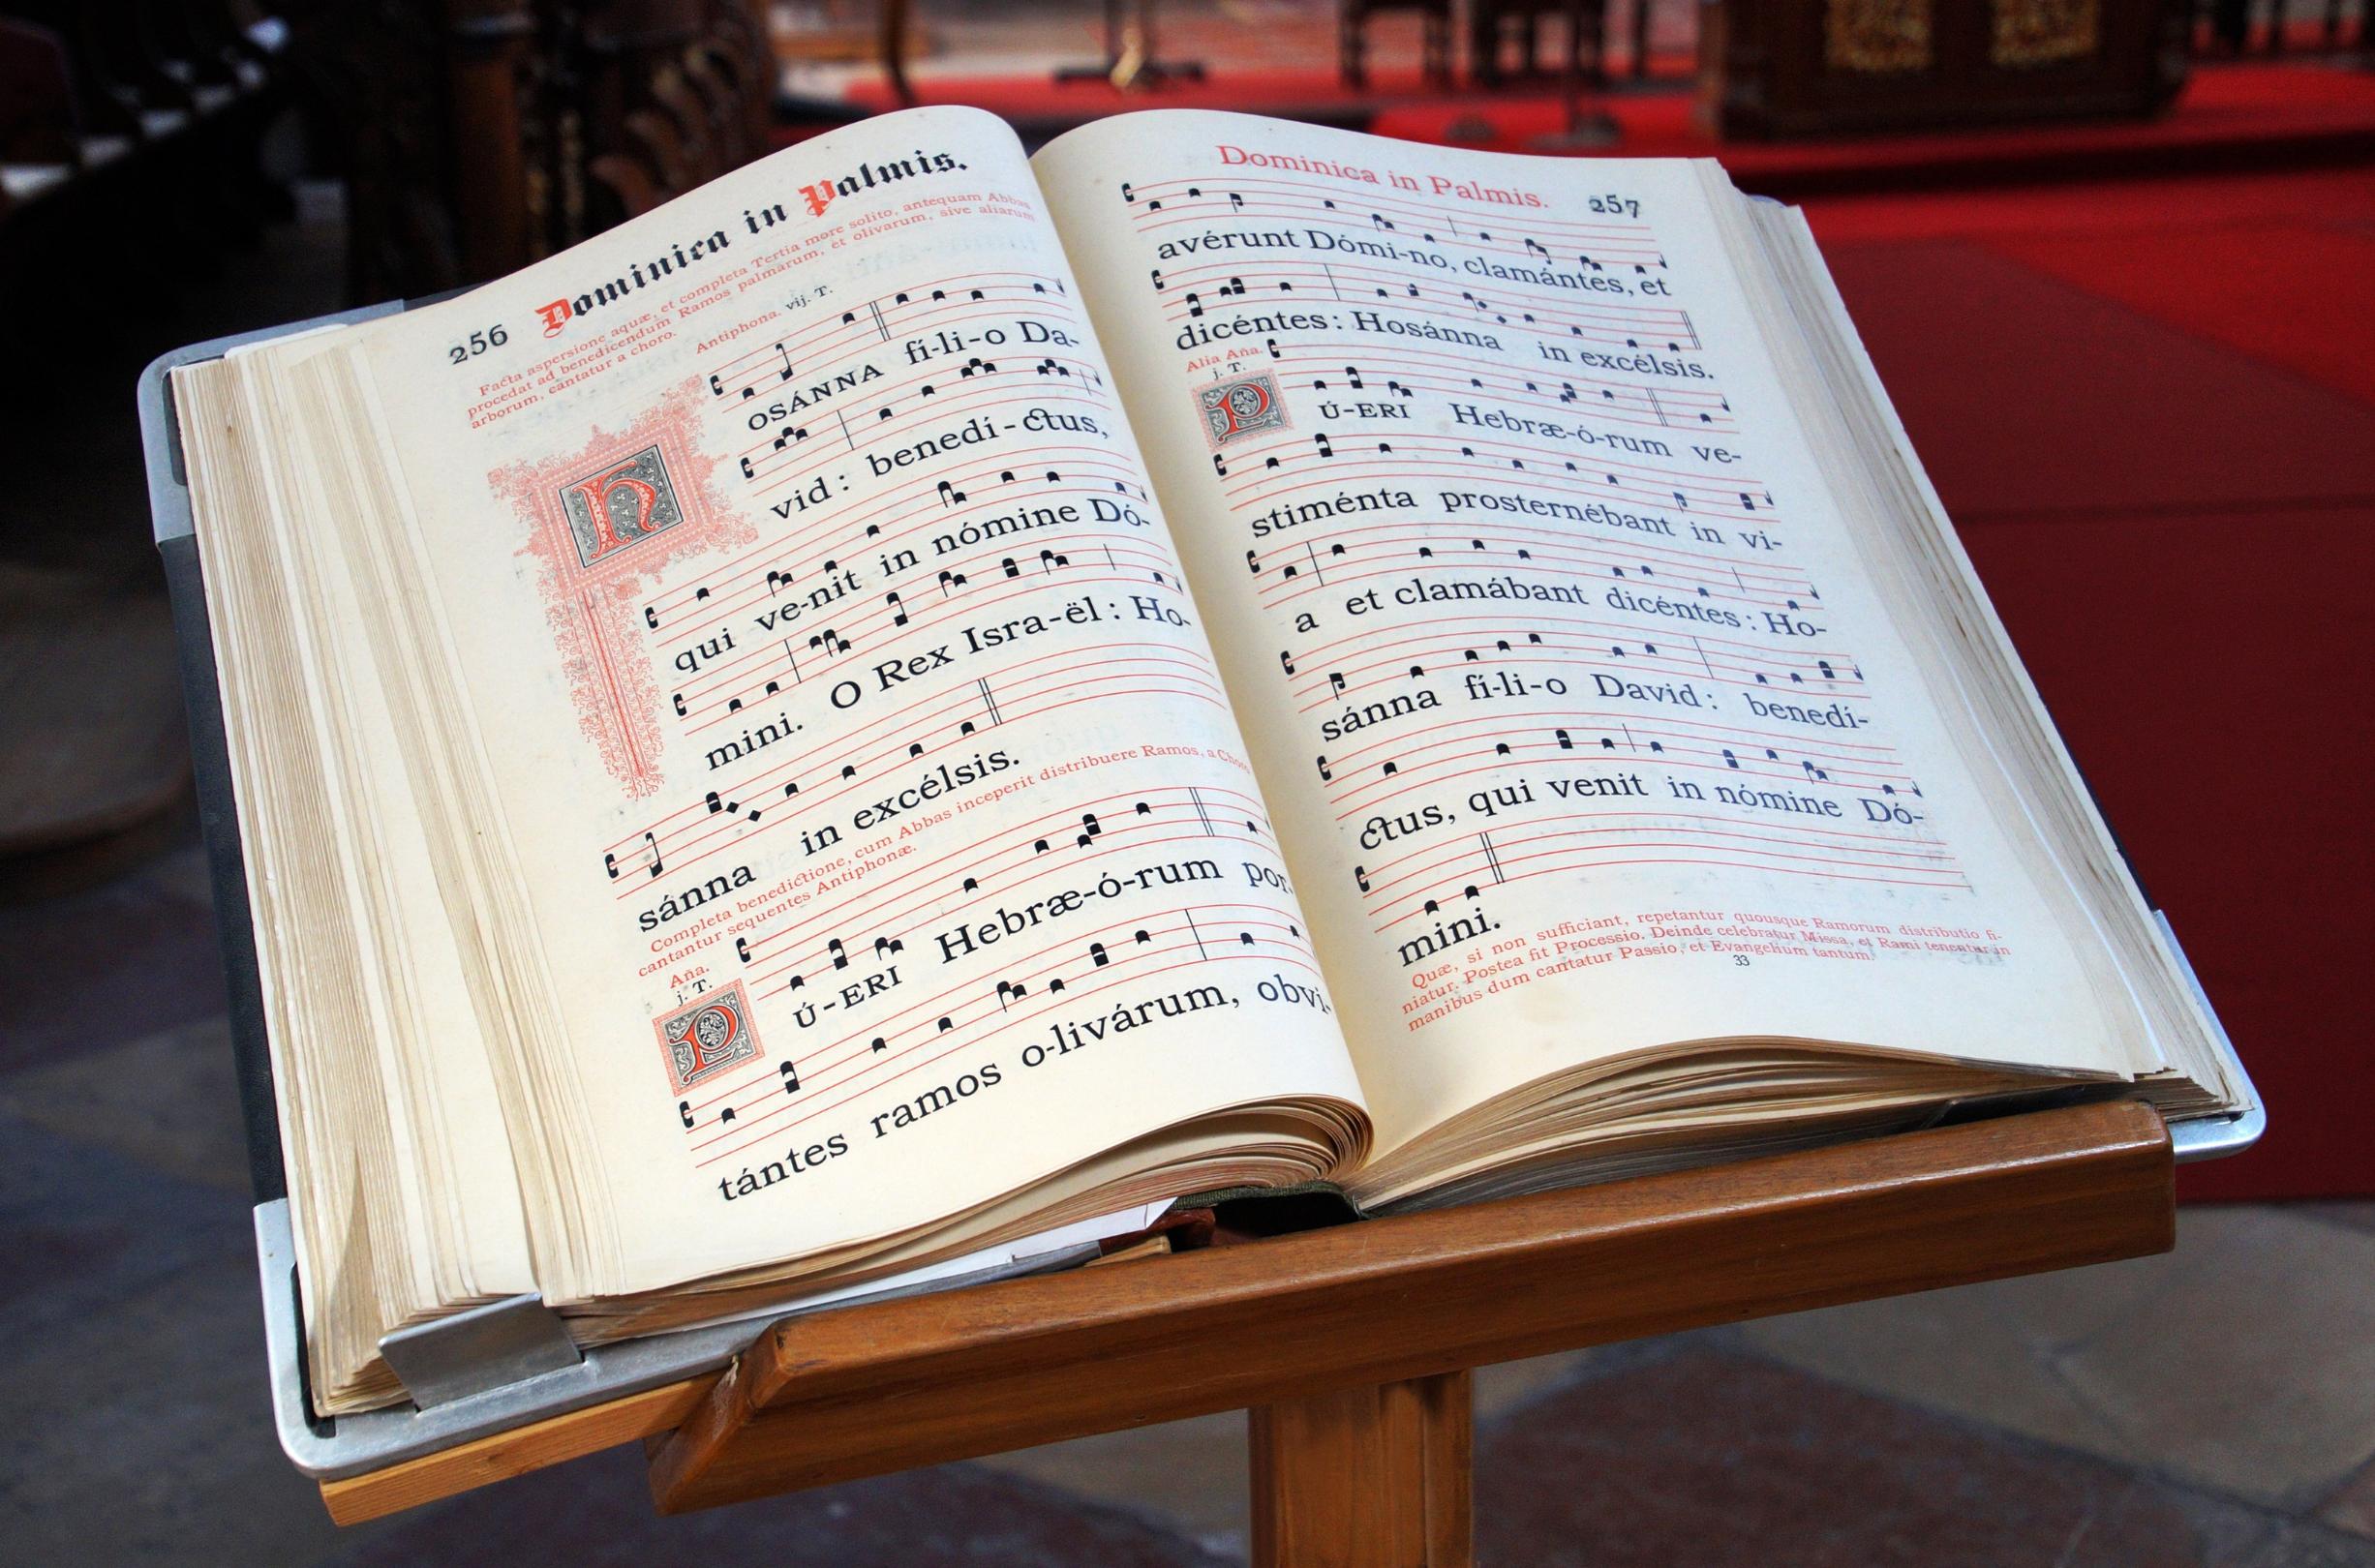 256
Dominica in Palmis.
Facta aspersione aquæ, et completa Tertia more solito, antequam Abbas
procedat ad benedicendum Ramos palmarum, et olivarum, sive aliarum
arborum, cantatur a choro.
Antiphona. vij. T.
HOSÁNNA fí-li-o Da-
vid: benedí-ctus,
qui ve-nit in nómine Dó-
mini. O Rex Isra-ël: Ho-
sánna in excélsis.
Completa benedictione, cum Abbas inceperit distribuere Ramos, a Choro
cantantur sequentes Antiphonæ.
Aña.
j. T.
PÚ-ERI Hebræ-ó-rum por-
tántes ramos o-livárum, obvi-
Dominica in Palmis. 257
avérunt Dómi-no, clamántes, et
dicéntes: Hosánna in excélsis.
Alia Aña.
j. T.
PÚ-ERI Hebræ-ó-rum ve-
stiménta prosternébant in vi-
a et clamábant dicéntes: Ho-
sánna fí-li-o David: benedí-
ctus, qui venit in nómine Dó-
mini.
Quæ, si non sufficiant, repetantur quousque Ramorum distributio fi-
niatur. Postea fit Processio. Deinde celebratur Missa, et Rami tenentur in
manibus dum cantatur Passio, et Evangelium tantum.
33